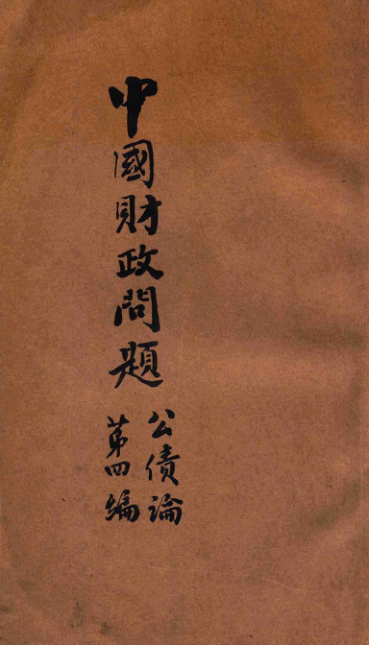 中國財政問題
公債論
第四編